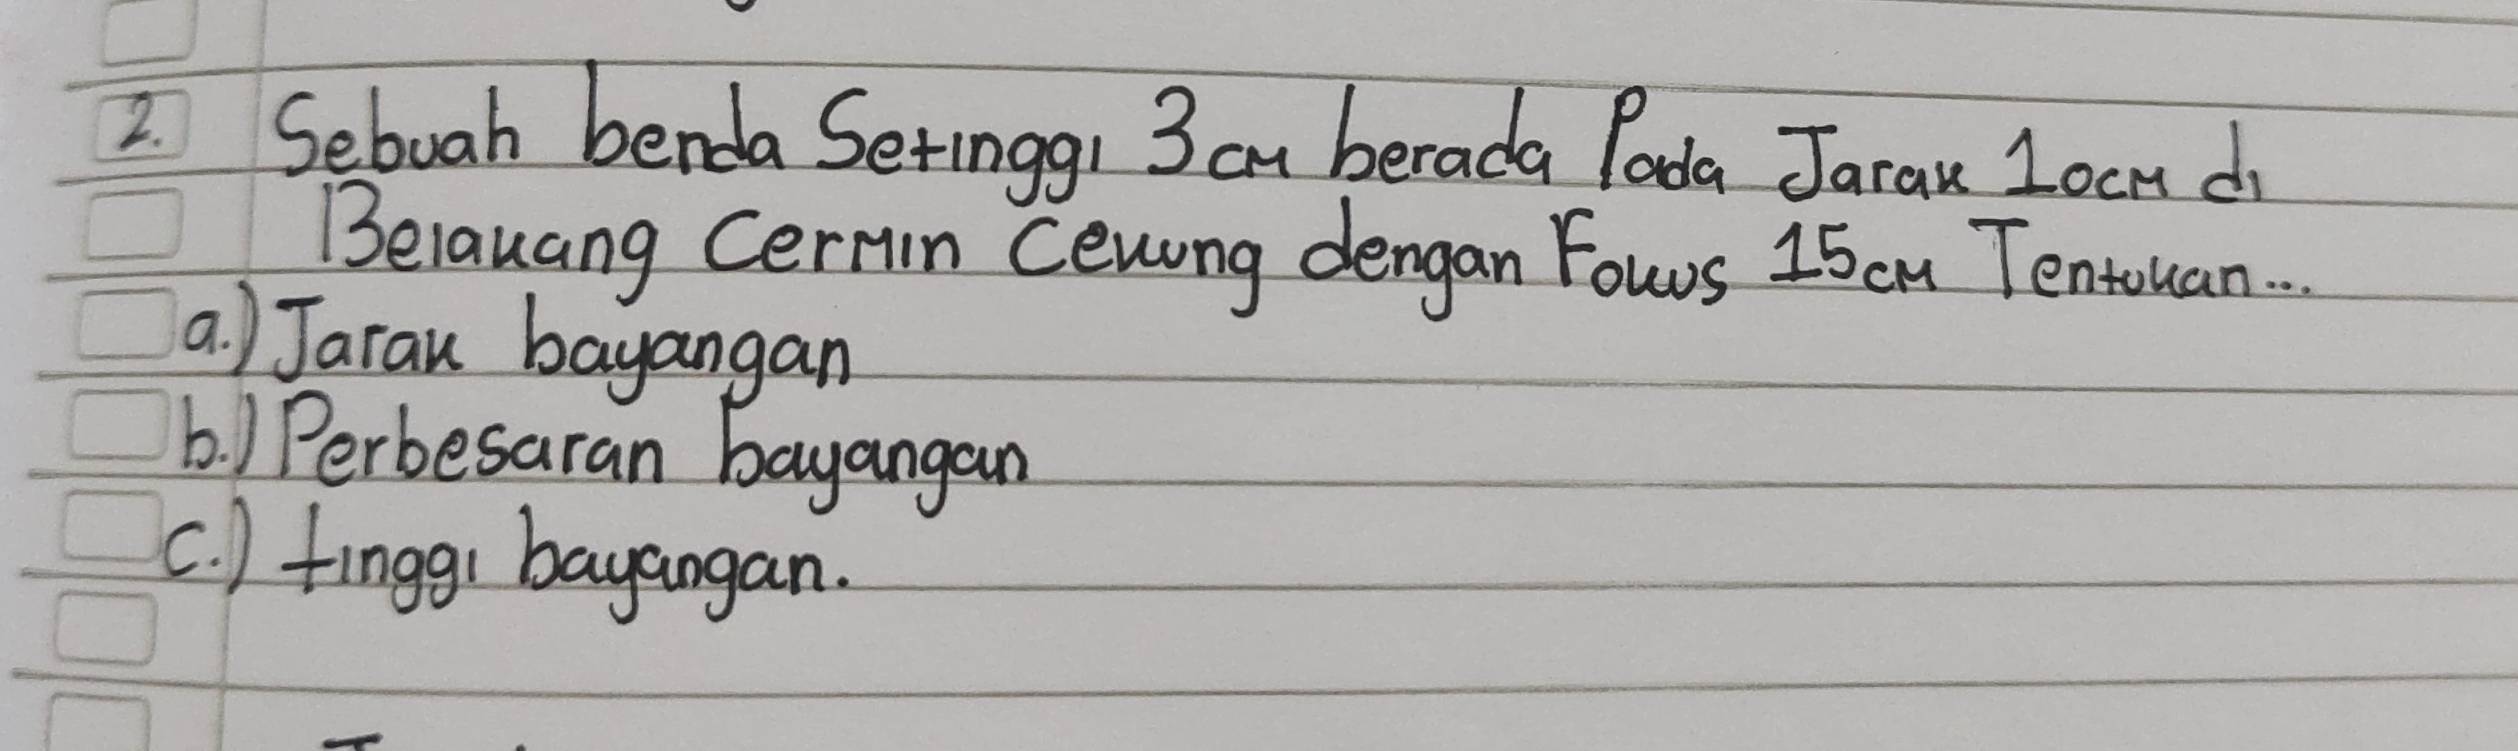 2. Sebuah benda Setinggi 3 cm berada Pada Jarak 10cm di
Belakang Cermin Cekung dengan Fokus 15 cm Tentukan...
a.) Jarak bayangan
b.) Perbesaran bayangan
c.) tinggi bayangan.